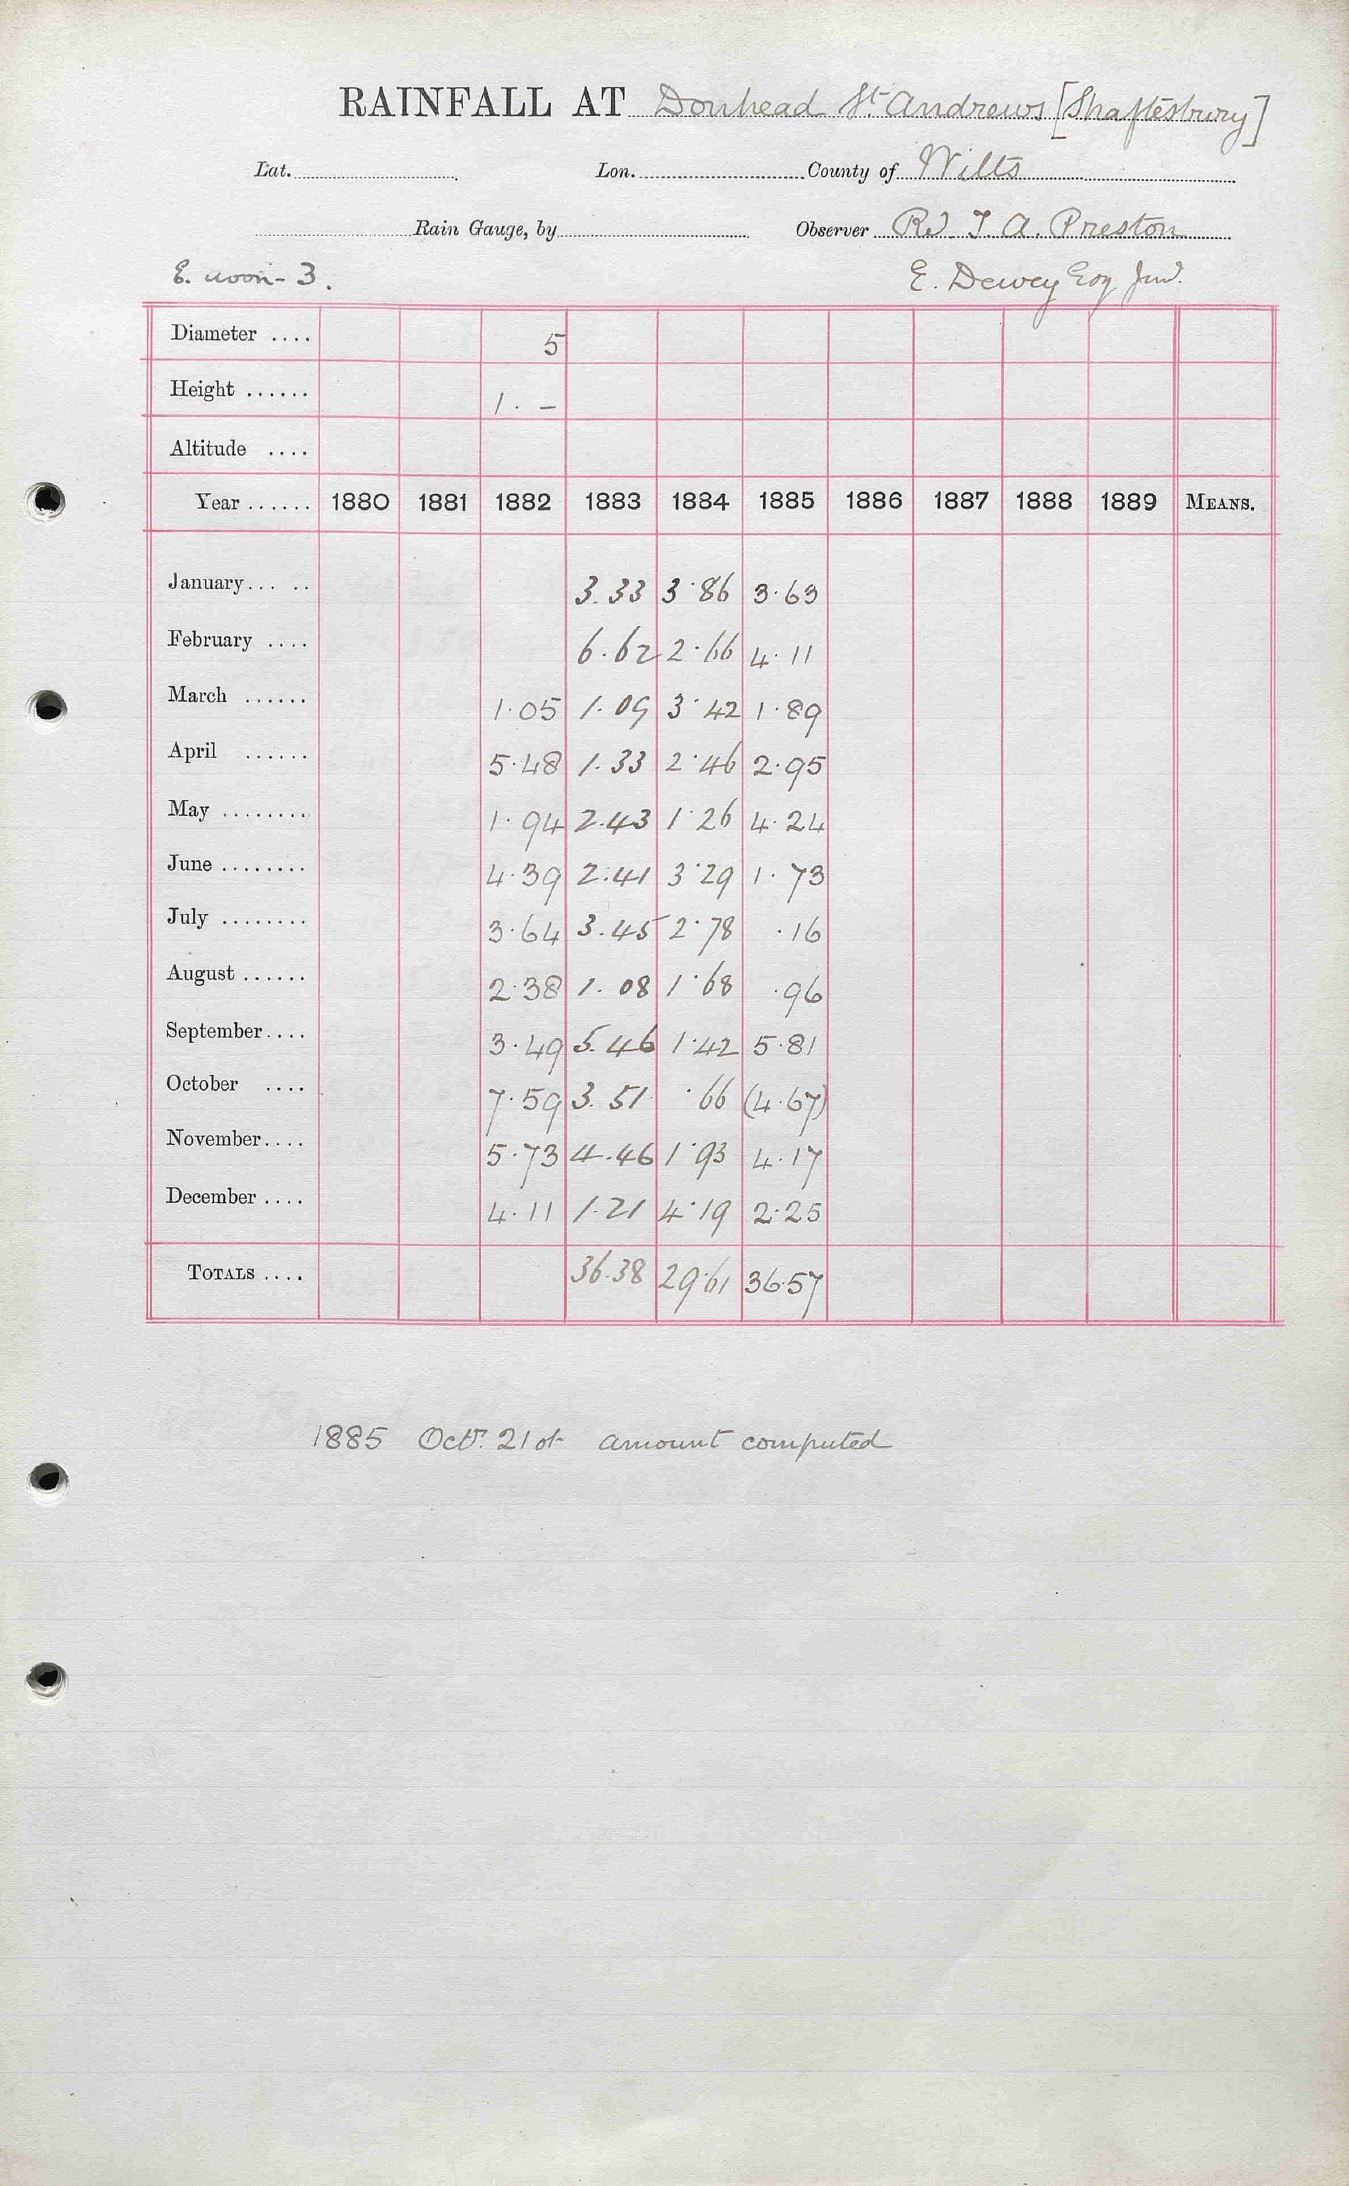 RAINFALL AT Donhead St. Andrews [Shaftesbury]
Lat. Lon. County of Wilts
Rain Gauge, by Observer Rd. T. A. Preston
E. noon-3. E. Dewey Esq Junr.
Diameter .... 5
Height ...... 1. -
Altitude ....
Year ...... 1880 1881 1882 1883 1884 1885 1886 1887 1888 1889 MEANS.
January... .. 3.33 3.86 3.63
February .... 6.62 2.66 4.11
March ...... 1.05 1.09 3.42 1.89
April ...... 5.48 1.33 2.46 2.95
May ........ 1.94 2.43 1.26 4.24
June ........ 4.39 2.41 3.29 1.73
July ........ 3.64 3.45 2.78 .16
August ...... 2.38 1.08 1.68 .96
September.... 3.49 5.46 1.42 5.81
October .... 7.59 3.51 .66 (4.67)
November.... 5.73 4.46 1.93 4.17
December .... 4.11 1.21 4.19 2.25
TOTALS .... 36.38 29.61 36.57
1885 Octr. 21st amount computed